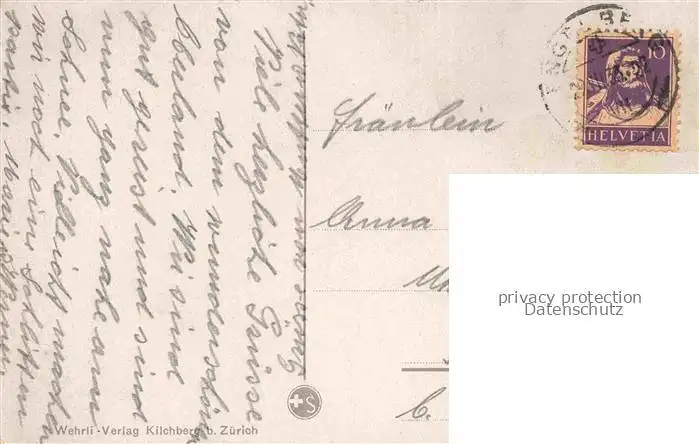 Viele herzliche Grüsse
von dem wunderschönen
Oberland. Wir sind
gut gereist und sind
nun ganz nahe am
Schnee. Vielleicht machen
wir noch eine Schlitten
partie.
Fräulein
Anna
HELVETIA
10
privacy protection
Datenschutz
Wehrli-Verlag Kilchberg b. Zürich
+S